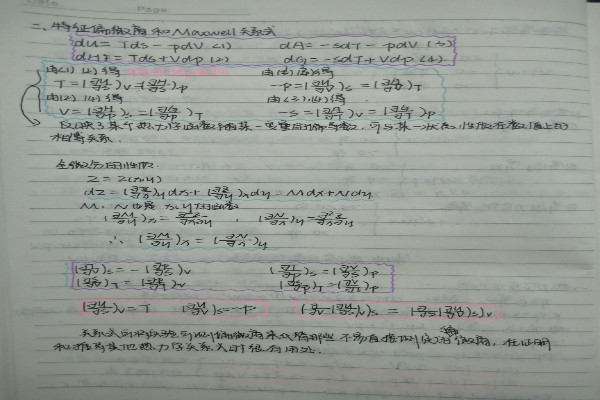 二、特征偏微商和Maxwell关系式
dU = TdS - pdV (1) dA = -SdT - pdV (3)
dH = TdS + Vdp (2) dG = -SdT + Vdp (4)
由(1)(2)得 由(1)(3)得
T = (∂U/∂S)V = (∂H/∂S)p -p = (∂U/∂V)S = (∂A/∂V)T
由(2)(4)得 由(3)(4)得
V = (∂H/∂p)S = (∂G/∂p)T -S = (∂A/∂T)V = (∂G/∂T)p
反映了某个热力学函数和某一变量的偏导数,可与某一状态性质在数值上的
相等关系.
全微分的性质
Z = Z(x,y)
dZ = (∂Z/∂x)y dx + (∂Z/∂y)x dy = Mdx + Ndy
M、N也是x,y的函数
(∂M/∂y)x = ∂²Z/∂x∂y , (∂N/∂x)y = ∂²Z/∂x∂y
∴ (∂M/∂y)x = (∂N/∂x)y
(∂T/∂V)S = -(∂p/∂S)V (∂T/∂p)S = (∂V/∂S)p
(∂S/∂V)T = (∂p/∂T)V (∂S/∂p)T = -(∂V/∂T)p
(∂U/∂S)V = T (∂U/∂V)S = -p (∂/∂V(∂U/∂S)V)S = (∂/∂S(∂U/∂V)S)V
关系式可将实验可测偏微商来代替那些不易直接测定的偏微商,在证明
和推导其他热力学关系式时很有用处.